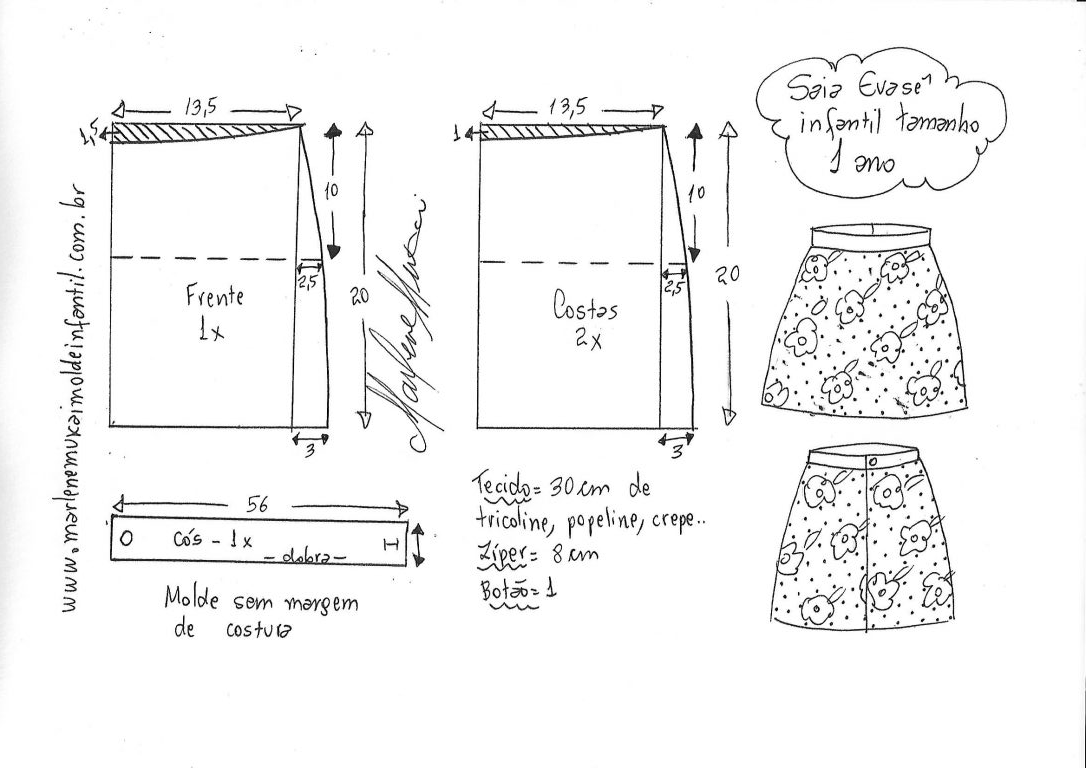 Saia Evasê
infantil tamanho
1 ano
13,5
1,5
10
2,5
20
Frente
1x
3
13,5
1
10
2,5
20
Costas
2x
3
www.marlenemukaimoldeinfantil.com.br
Marlene Mukai
56
cós - 1x
- dobra -
Molde sem margem
de costura
Tecido= 30cm de
tricoline, popeline, crepe..
Zíper= 8cm
Botão= 1